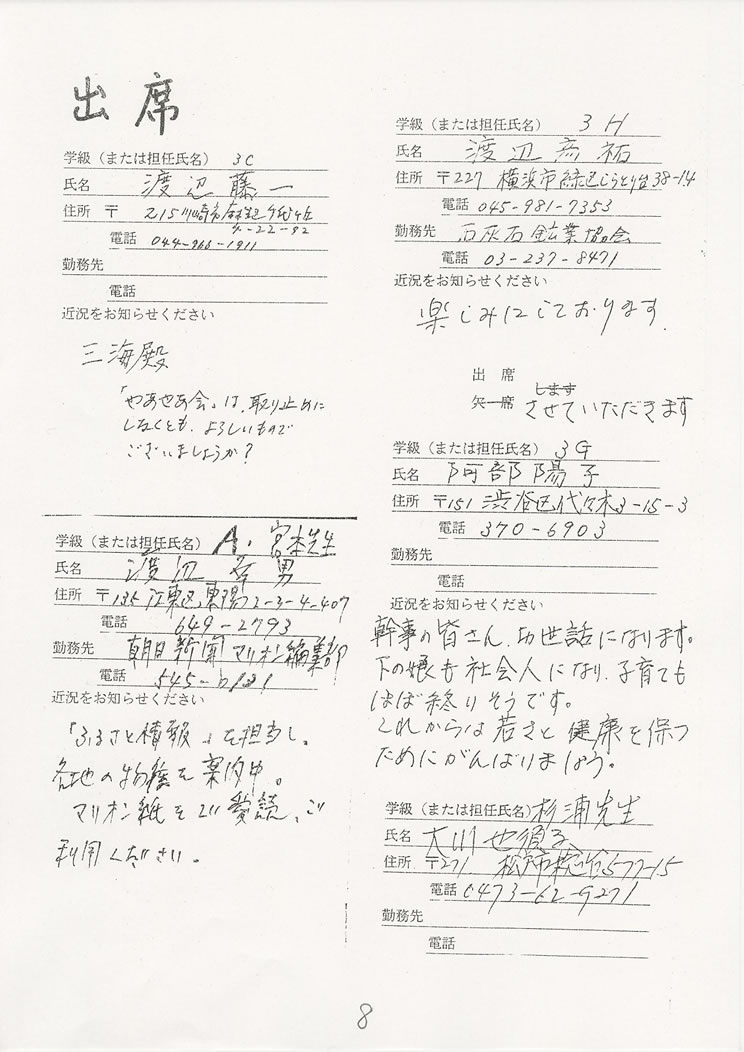 出席
学級（または担任氏名） 3C
氏名 渡辺 藤一
住所 〒 215 川崎市麻生区千代ヶ丘
4-22-92
電話 044-966-1911
勤務先
電話
近況をお知らせください
三海殿
「やあやあ会」は、取り止めに
しなくとも、よろしいもので
ございましょうか？
学級（または担任氏名） A・宮本先生
氏名 渡辺 幸男
住所 〒135 江東区東陽2-3-4-407
電話 649-2793
勤務先 朝日新聞マリオン編集部
電話 545-0131
近況をお知らせください
「ふるさと情報」を担当し、
各地の物産を案内中。
マリオン紙をご愛読、ご
利用ください。
学級（または担任氏名） 3H
氏名 渡辺 彦祐
住所 〒227 横浜市緑区しらとり台38-14
電話 045-981-7353
勤務先 石灰石鉱業協会
電話 03-237-8471
近況をお知らせください
楽しみにしております．
出 席
します
欠 席 させていただきます
学級（または担任氏名） 3G
氏名 阿部陽子
住所 〒151 渋谷区代々木3-15-3
電話 370-6903
勤務先
電話
近況をお知らせください
幹事の皆さん、お世話になります。
下の娘も社会人になり、子育ても
ほぼ終りそうです。
これからは若さと健康を保つ
ためにがんばりましょう。
学級（または担任氏名） 杉浦先生
氏名 大川
住所 〒271 松戸市 577-15
電話 0473-62-9271
勤務先
電話
8